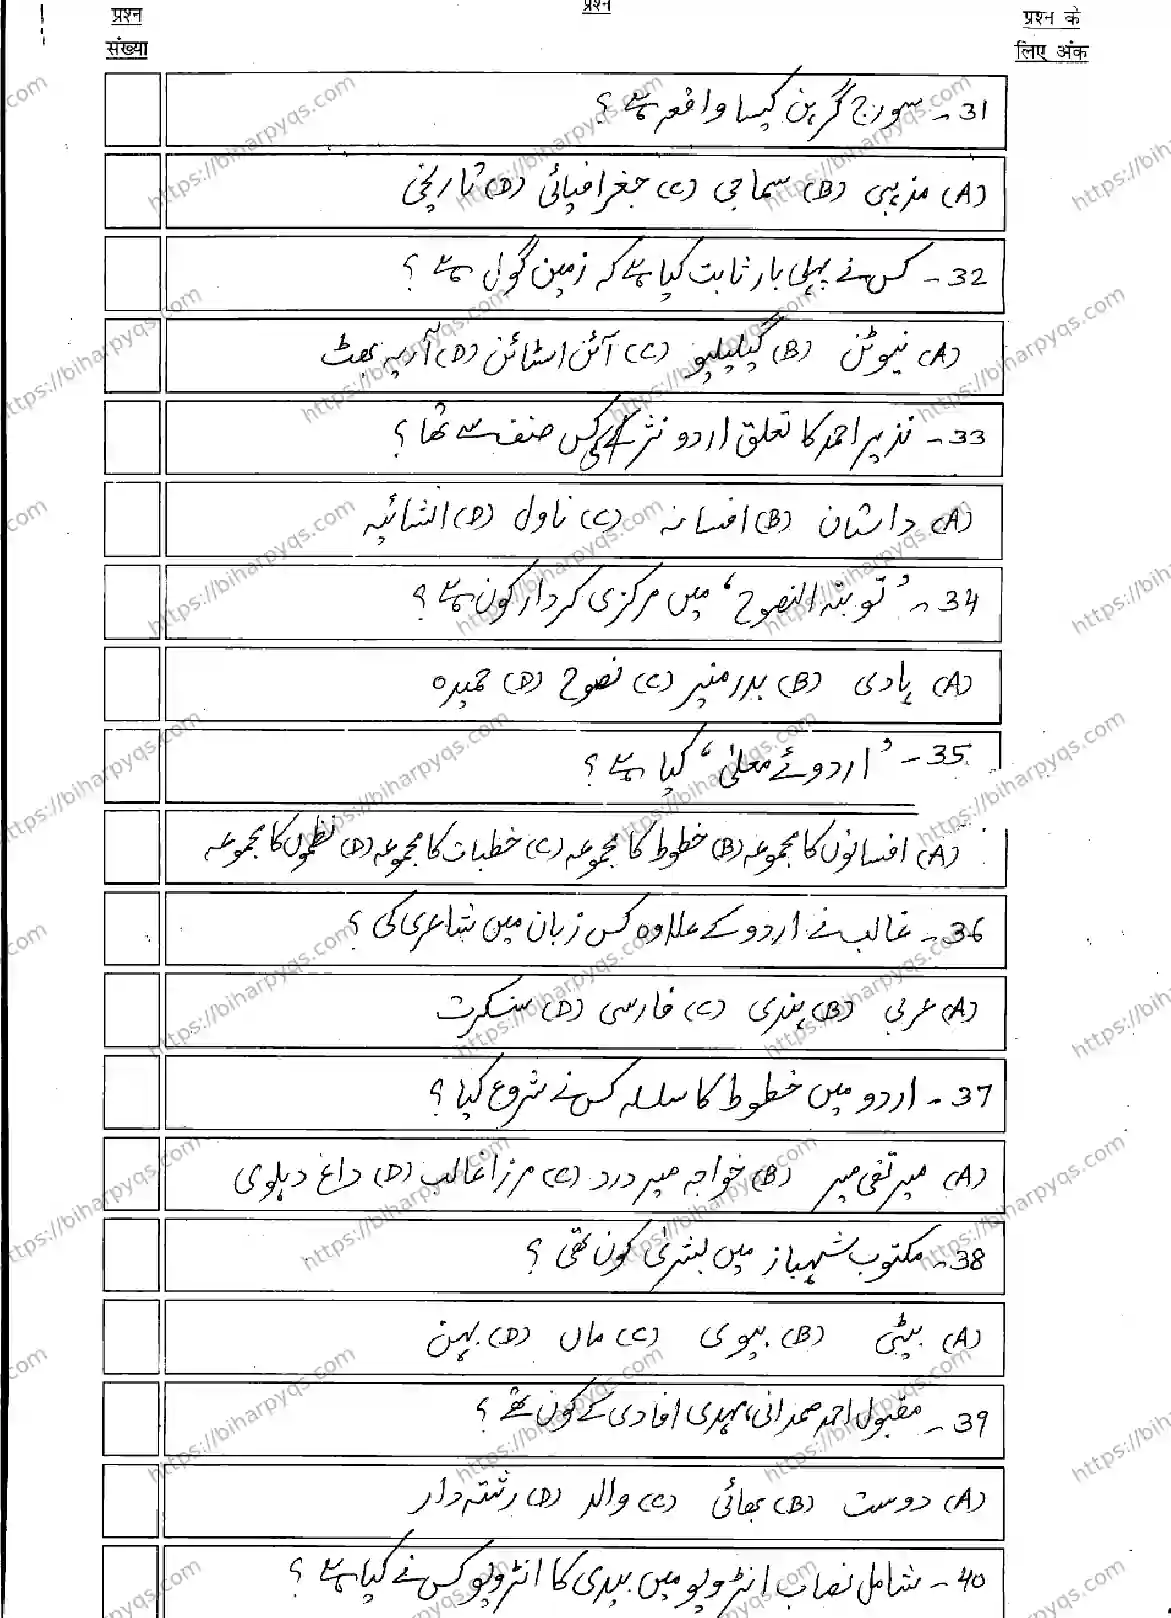 प्रश्न संख्या
प्रश्न
प्रश्न के लिए अंक
31- سورج گرہن کیسا واقعہ ہے؟
(A) مذہبی (B) سماجی (C) جغرافیائی (D) تاریخی
32- کس نے پہلی بار ثابت کیا ہے کہ زمین گول ہے؟
(A) نیوٹن (B) گیلیلیو (C) آئن اسٹائن (D) آریہ بھٹ
33- نذیر احمد کا تعلق اردو نثر کے کس صنف سے تھا؟
(A) داستان (B) افسانہ (C) ناول (D) انشائیہ
34- ’توبتہ النصوح‘ میں مرکزی کردار کون ہے؟
(A) ہادی (B) بدر منیر (C) نصوح (D) حمیدہ
35- ’اردوئے معلیٰ‘ کیا ہے؟
(A) افسانوں کا مجموعہ (B) خطوط کا مجموعہ (C) خطبات کا مجموعہ (D) نظموں کا مجموعہ
36- غالب نے اردو کے علاوہ کس زبان میں شاعری کی؟
(A) عربی (B) ہندی (C) فارسی (D) سنسکرت
37- اردو میں خطوط کا سلسلہ کس نے شروع کیا؟
(A) میر تقی میر (B) خواجہ میر درد (C) مرزا غالب (D) داغ دہلوی
38- مکتوب شہباز میں بشریٰ کون تھی؟
(A) بیٹی (B) بیوی (C) ماں (D) بہن
39- مقبول احمد صمدانی، مہدی افادی کے کون تھے؟
(A) دوست (B) بھائی (C) والد (D) رشتہ دار
40- شامل نصاب انٹرویو میں بیدی کا انٹرویو کس نے کیا ہے؟
https://biharpyqs.com